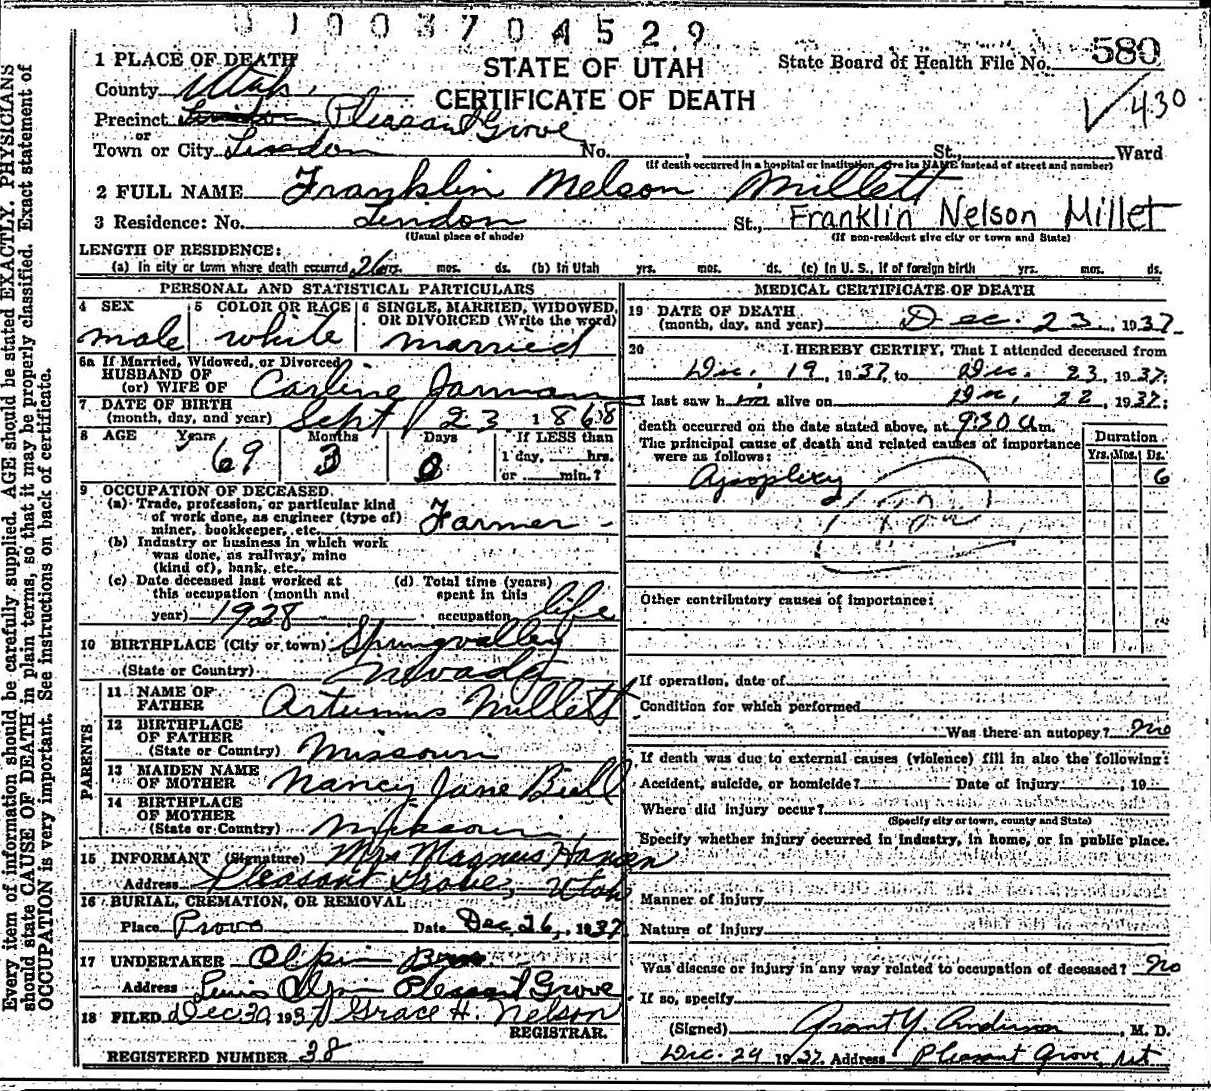 0 1 0 0 3 7 0 4 5 2 9
1 PLACE OF DEATH
STATE OF UTAH
CERTIFICATE OF DEATH
State Board of Health File No. 580
430
County Utah
Precinct Lindon Pleasant Grove
or
Town or City Lindon No. , St., Ward
(If death occurred in a hospital or institution, give its NAME instead of street and number)
2 FULL NAME Franklin Nelson Millett
3 Residence: No. Lindon St., Franklin Nelson Millet
(Usual place of abode) (If non-resident give city or town and State)
LENGTH OF RESIDENCE:
(a) In city or town where death occurred 26 yrs. mos. ds. (b) In Utah yrs. mos. ds. (c) In U. S., if of foreign birth yrs. mos. ds.
PERSONAL AND STATISTICAL PARTICULARS
4 SEX male
5 COLOR OR RACE white
6 SINGLE, MARRIED, WIDOWED, OR DIVORCED (Write the word) married
6a If Married, Widowed, or Divorced
HUSBAND OF
(or) WIFE OF Carline Jarman
7 DATE OF BIRTH
(month, day, and year) Sept 23 1868
8 AGE Years Months Days If LESS than
69 3 0 1 day, hrs.
or min.?
9 OCCUPATION OF DECEASED.
(a) Trade, profession, or particular kind
of work done, as engineer (type of)
miner, bookkeeper, etc. Farmer
(b) Industry or business in which work
was done, as railway, mine
(kind of), bank, etc.
(c) Date deceased last worked at
this occupation (month and
year) 1928
(d) Total time (years)
spent in this
occupation life
10 BIRTHPLACE (City or town) Springvalley
(State or Country) Nevada
PARENTS
11 NAME OF
FATHER Artumus Millett
12 BIRTHPLACE
OF FATHER
(State or Country) Missouri
13 MAIDEN NAME
OF MOTHER Nancy Jane Bull
14 BIRTHPLACE
OF MOTHER
(State or Country) Missouri
15 INFORMANT (Signature) Mrs Magnus Hansen
Address Pleasant Grove, Utah
16 BURIAL, CREMATION, OR REMOVAL
Place Provo Date Dec. 26, 1937
17 UNDERTAKER Olpin Bros
Address Lewis Olpin Pleasant Grove
18 FILED Dec 30, 1937 Grace H. Nelson
REGISTRAR.
REGISTERED NUMBER 38
MEDICAL CERTIFICATE OF DEATH
19 DATE OF DEATH
(month, day, and year) Dec. 23, 1937
20 I HEREBY CERTIFY, That I attended deceased from
Dec. 19, 1937, to Dec. 23, 1937;
I last saw him alive on Dec. 22, 1937;
death occurred on the date stated above, at 9:30 a.m.
The principal cause of death and related causes of importance
were as follows:
Duration
Yrs. Mos. Ds.
Apoplexy 6
Other contributory causes of importance:
If operation, date of
Condition for which performed
Was there an autopsy? no
If death was due to external causes (violence) fill in also the following:
Accident, suicide, or homicide? Date of injury , 19
Where did injury occur?
(Specify city or town, county and State)
Specify whether injury occurred in industry, in home, or in public place.
Manner of injury
Nature of injury
Was disease or injury in any way related to occupation of deceased? no
If so, specify
(Signed) Grant Y. Anderson, M. D.
Dec. 29 1937 Address Pleasant Grove, Ut
Every item of information should be carefully supplied. AGE should be stated EXACTLY. PHYSICIANS
should state CAUSE OF DEATH in plain terms, so that it may be properly classified. Exact statement of
OCCUPATION is very important. See instructions on back of certificate.